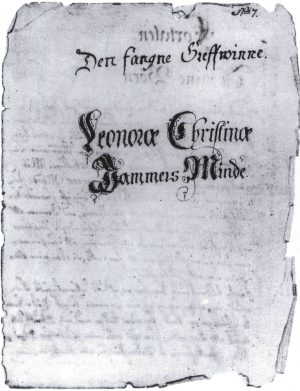 Den fangne Greffwinne.
Leonoræ Christinæ
Jammers Minde